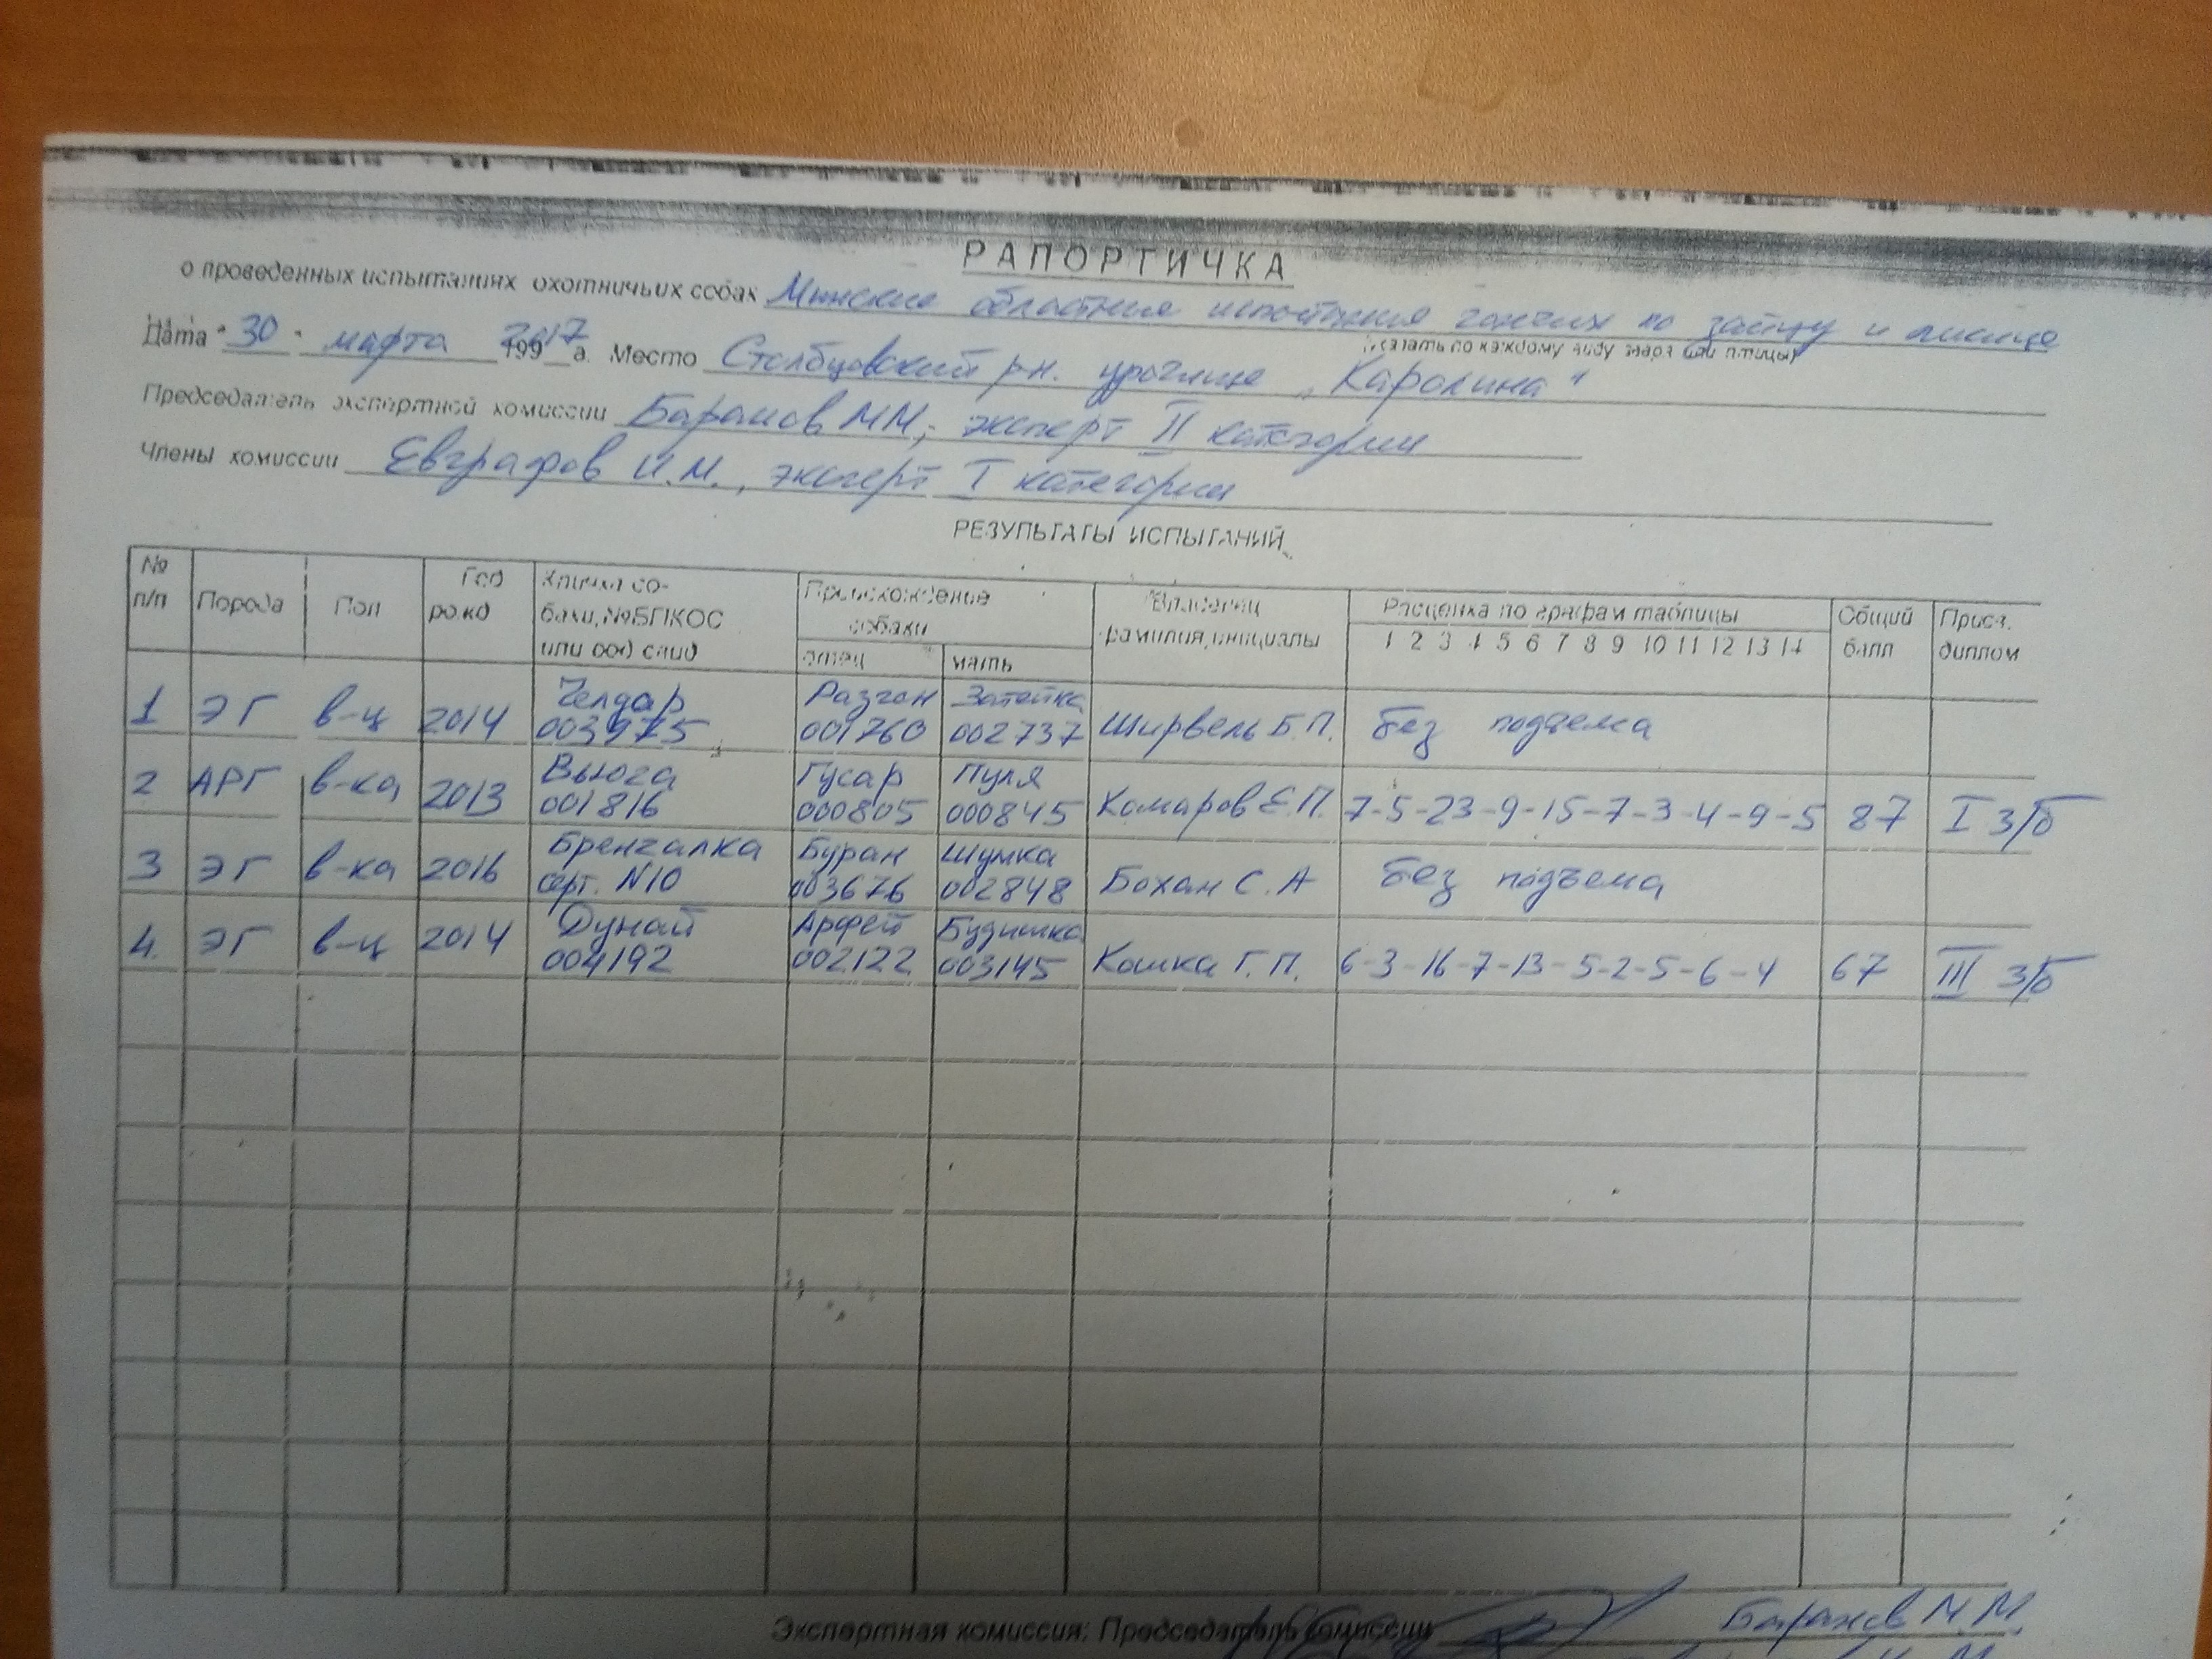 РАПОРТИЧКА
о проведенных испытаниях охотничьих собак Минские областные испытания гончих по зайцу и лисице
(указать по каждому виду зверя или птицы)
Дата "30" марта 2017 199_г. Место Столбцовский р-н. урочище "Каролина"
Председатель экспертной комиссии Баранов М.М., эксперт II категории
Члены комиссии Евграфов И.М., эксперт I категории
РЕЗУЛЬТАТЫ ИСПЫТАНИЙ
№ п/п Порода Пол Год рожд Кличка собаки, №БПКОС или свид Происхождение собаки отец мать Владелец фамилия, инициалы Расценка по графам таблицы 1 2 3 4 5 6 7 8 9 10 11 12 13 14 Общий балл Присв. диплом
1 ЭГ в-ц 2014 Челдар 003975 Разгон 001760 Затейка 002737 Ширвель Б.П. без подъема
2 АРГ в-ка 2013 Вьюга 001816 Гусар 000805 Пуля 000845 Комаров Е.П. 7-5-23-9-15-7-3-4-9-5 87 I з/б
3 ЭГ в-ка 2016 серт. N10 Буран 003676 Шумка 002848 Бохан С.А без подъема
4. ЭГ в-ц 2014 Дунай 004192 Арфей 002122 003145 Кошка Г.П. 6-3-16-7-13-5-2-5-6-4 67 III з/б
Экспертная комиссия: Председатель комиссии Баранов М.М.